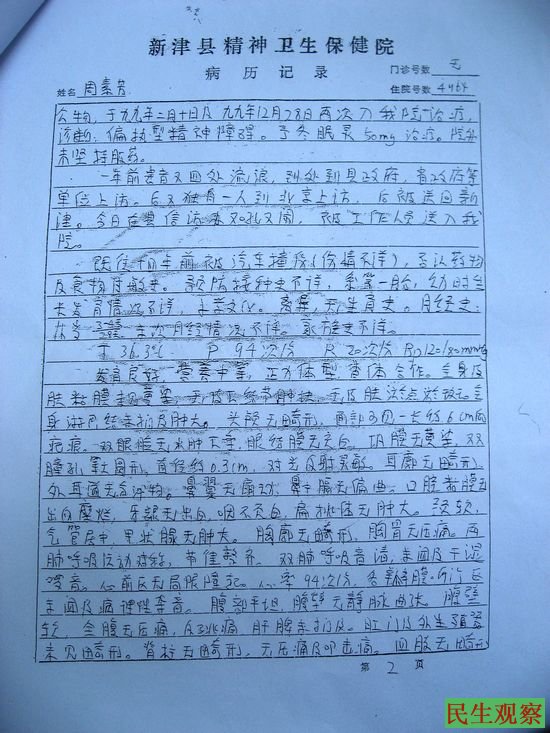 新津县精神卫生保健院
病历记录
门诊号数 无
姓名 周素芳
住院号数 4464
公物，于九九年二月十日及九九年12月28日两次入我院治疗，
诊断：偏执型精神障碍。予冬眠灵50mg治疗。院外
未坚持服药。
一年前患者又四处流浪，到处到县政府，省政府等
单位上访。后又独自一人到北京上访，后被送回新
津。今日在县信访办又扰又闹，被工作人员送入我
院。
既往 年前被汽车撞伤（伤情不详），否认药物
及食物过敏史。预防接种史不详。系第一胎，幼时生
长发育情况不详，文化。离异，无生育史。月经史：
末次月经情况不详。家族史不详。
T 36.3℃ P 94次/分 R 20次/分 BP 120/80mmHg
发育良好，营养中等，正力体型，查体合作。全身皮
肤粘膜无黄染，无皮下结节肿块，无皮肤淤点淤斑。全
身淋巴结未扪及肿大。头颅无畸形，面部可见一长约6cm
疤痕。双眼睑无水肿下垂，眼结膜无充血，巩膜无黄染，双
瞳孔等大同圆，直径约0.3cm，对光反射灵敏。耳廓无畸形，
外耳道无分泌物。鼻翼无扇动，鼻中隔无偏曲。口腔粘膜无
出血糜烂，牙龈无出血，咽不充血，扁桃体无肿大。颈软，
气管居中，甲状腺无肿大。胸廓无畸形，胸骨无压痛。两
肺呼吸运动对称，节律整齐。双肺呼吸音清，未闻及干湿
啰音。心前区无局限隆起。心率94次/分，各瓣膜听诊区
未闻及病理性杂音。腹部平坦，腹壁无静脉曲张。腹壁
软，全腹无压痛，反跳痛，肝脾未扪及。肛门及外生殖器
未见畸形。脊柱无畸形，无压痛及叩击痛。四肢无畸形
第 2 页
民生观察